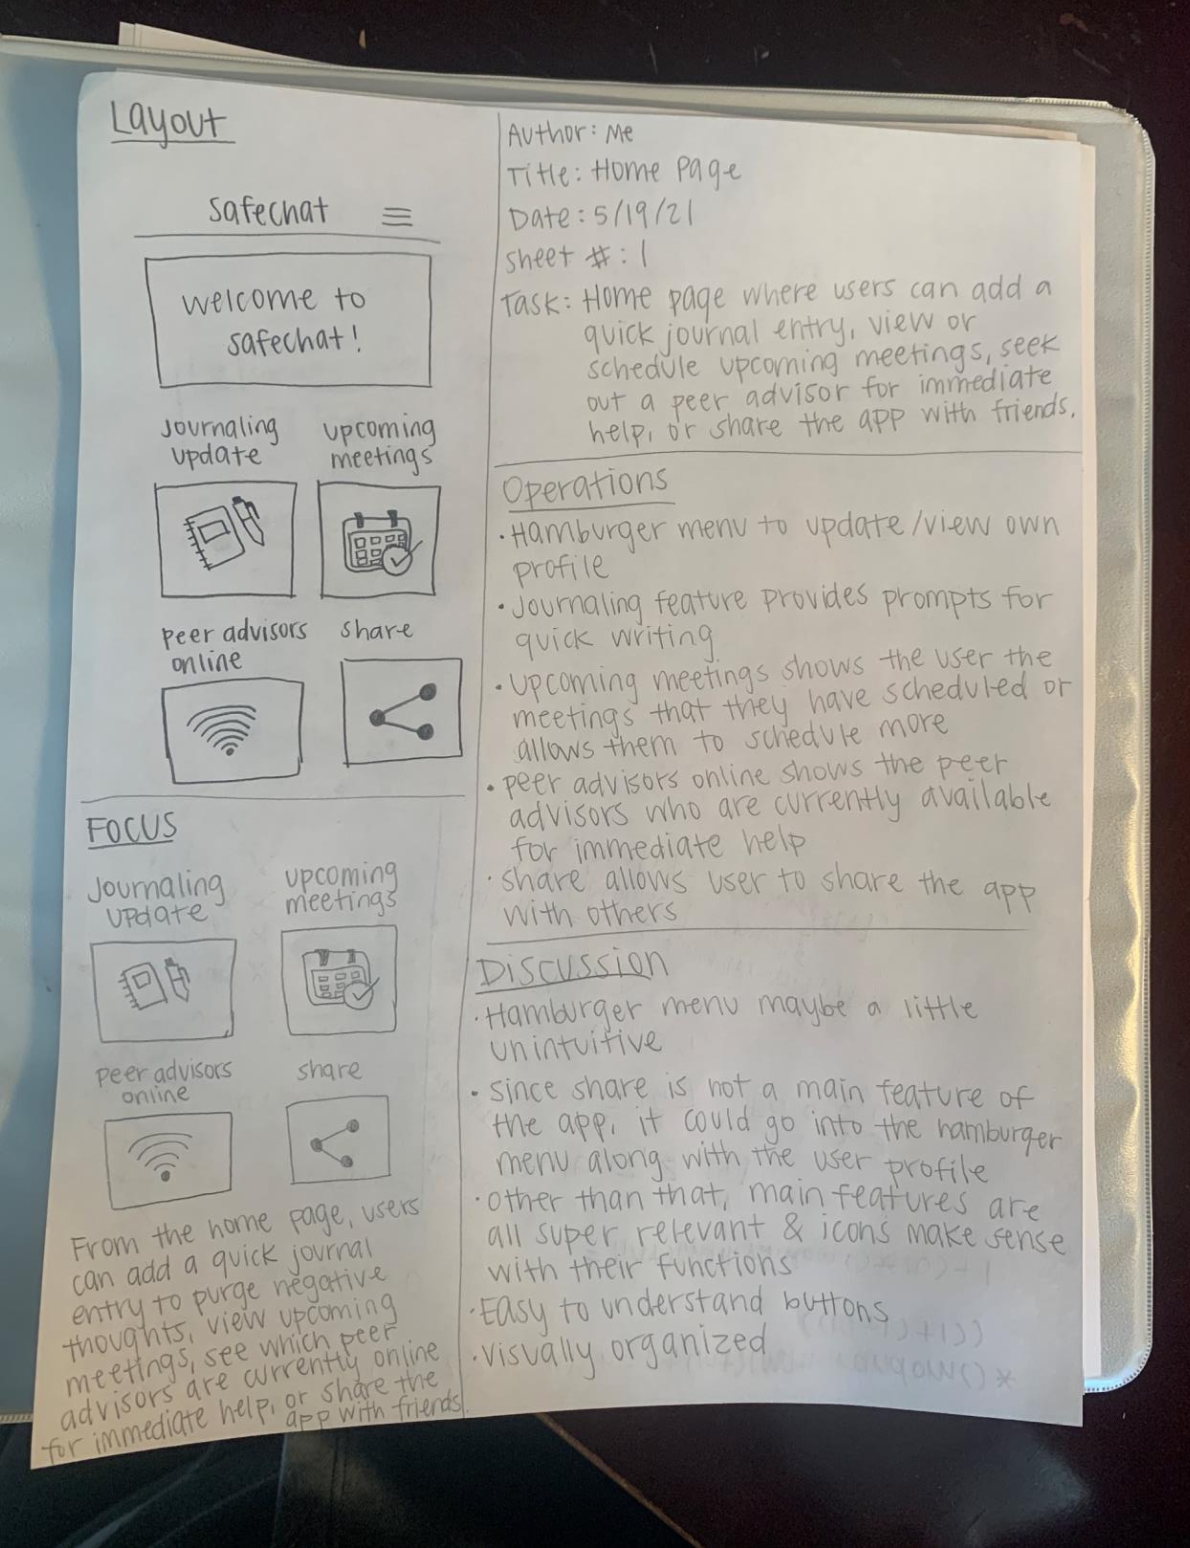 Layout
Safechat
Welcome to
safechat!
Journaling
update
upcoming
meetings
peer advisors
online
share
Focus
Journaling
update
upcoming
meetings
peer advisors
online
share
From the home page, users
can add a quick journal
entry to purge negative
thoughts, view upcoming
meetings, see which peer
advisors are currently online
for immediate help, or share the
app with friends.
Author: Me
Title: Home Page
Date: 5/19/21
Sheet #: 1
Task: Home page where users can add a
quick journal entry, view or
schedule upcoming meetings, seek
out a peer advisor for immediate
help, or share the app with friends.
Operations
• Hamburger menu to update/view own
profile
• Journaling feature provides prompts for
quick writing
• Upcoming meetings shows the user the
meetings that they have scheduled or
allows them to schedule more
• peer advisors online shows the peer
advisors who are currently available
for immediate help
• share allows user to share the app
with others
Discussion
• Hamburger menu maybe a little
unintuitive
• since share is not a main feature of
the app, it could go into the hamburger
menu along with the user profile
• other than that, main features are
all super relevant & icons make sense
with their functions
• Easy to understand buttons
• visually organized